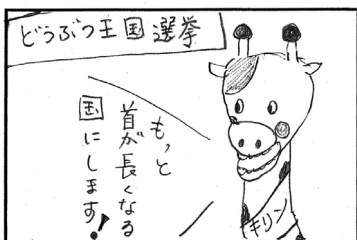 どうぶつ王国選挙
もっと
首が長くなる
国にします!
キリン